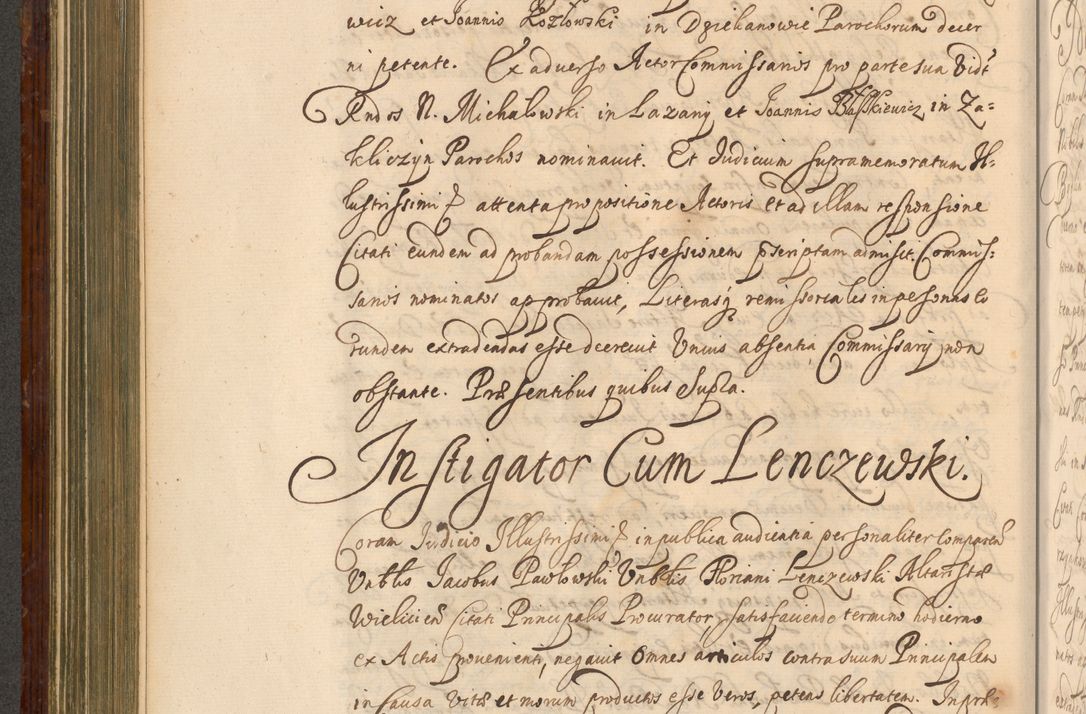 wicz et Joannis Kozlowski in Dziekanowie Parochorum decer
ni petente. Ex adverso Actor Commissarios pro parte sua Vidt
Rndos N. Michalowski in Lazany et Joannis Baskiewicz in Za=
kliczyn Parochos nominavit. Et Judicium supramemoratum Il=
lustrissimi attenta propositione Actoris et ad illam responsione
Citati eundem ad probandam possessionem pscriptam admisit. Commis=
sarios nominatos approbavit, Literasq remissoriales in personas eo
rundem extradendas esse dcerevit Unius absentia Commissarij non
obstante. Præsentibus quibus Supra.
Instigator Cum Lenczewski.
Coram Judicio Illustrissimi in publica audientia personaliter comparen
Vnblis Jacobus Pawlowski Vnblis Floriani Lenczewski Altaristæ
Wielicien Citati Principalis Procurator, satisfaciendo termino hodierno
ex Actis provenienti, negavit omnes articulos contra suum Principalem
in Causa Vitæ et morum productos esse Veros, petens libertatem. In præ=